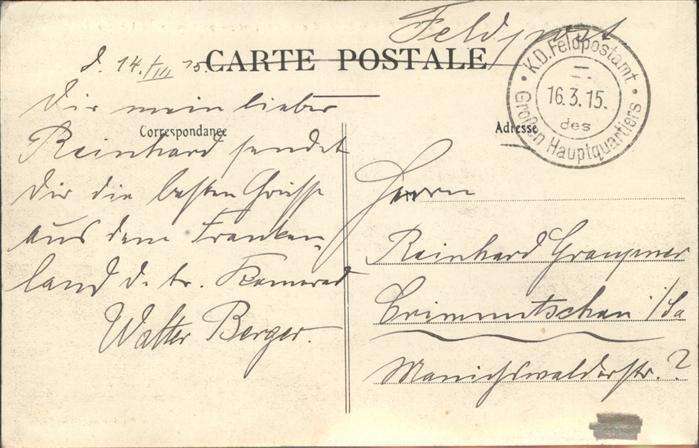 Feldpost
d. 14./III 15.
CARTE POSTALE
K.D. Feldpostamt
16.3.15.
des
Großen Hauptquartiers
Correspondance
Adresse
Dir mein lieber
Reinhard sendet
Dir die besten Grüsse
aus dem Franken-
land d. tr. Kamerad
Walter Berger.
Herrn
Reinhard Graupner
Crimmitschau i/Sa
Manichswalderstr. 2